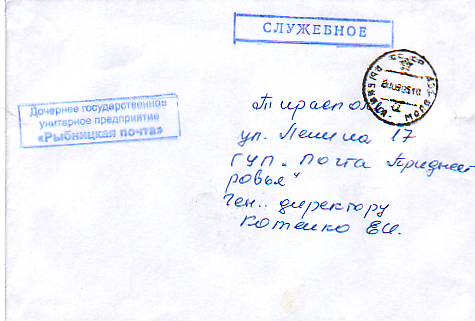 СЛУЖЕБНОЕ
Дочернее государственное
унитарное предприятие
«Рыбницкая почта»
Тирасполь
ул. Ленина 17
ГУП „Почта Приднест
ровья"
Ген.. директору
Котенко Е.И.